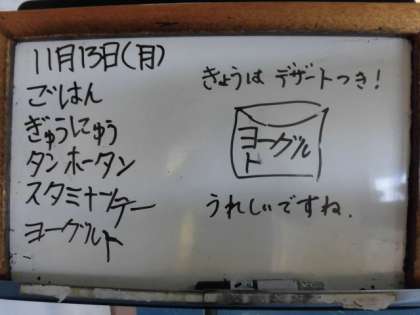 11月13日(月)
ごはん
ぎゅうにゅう
タンホータン
スタミナソテー
ヨーグルト
きょうは デザートつき!
ヨーグル
ト
うれしいですね.